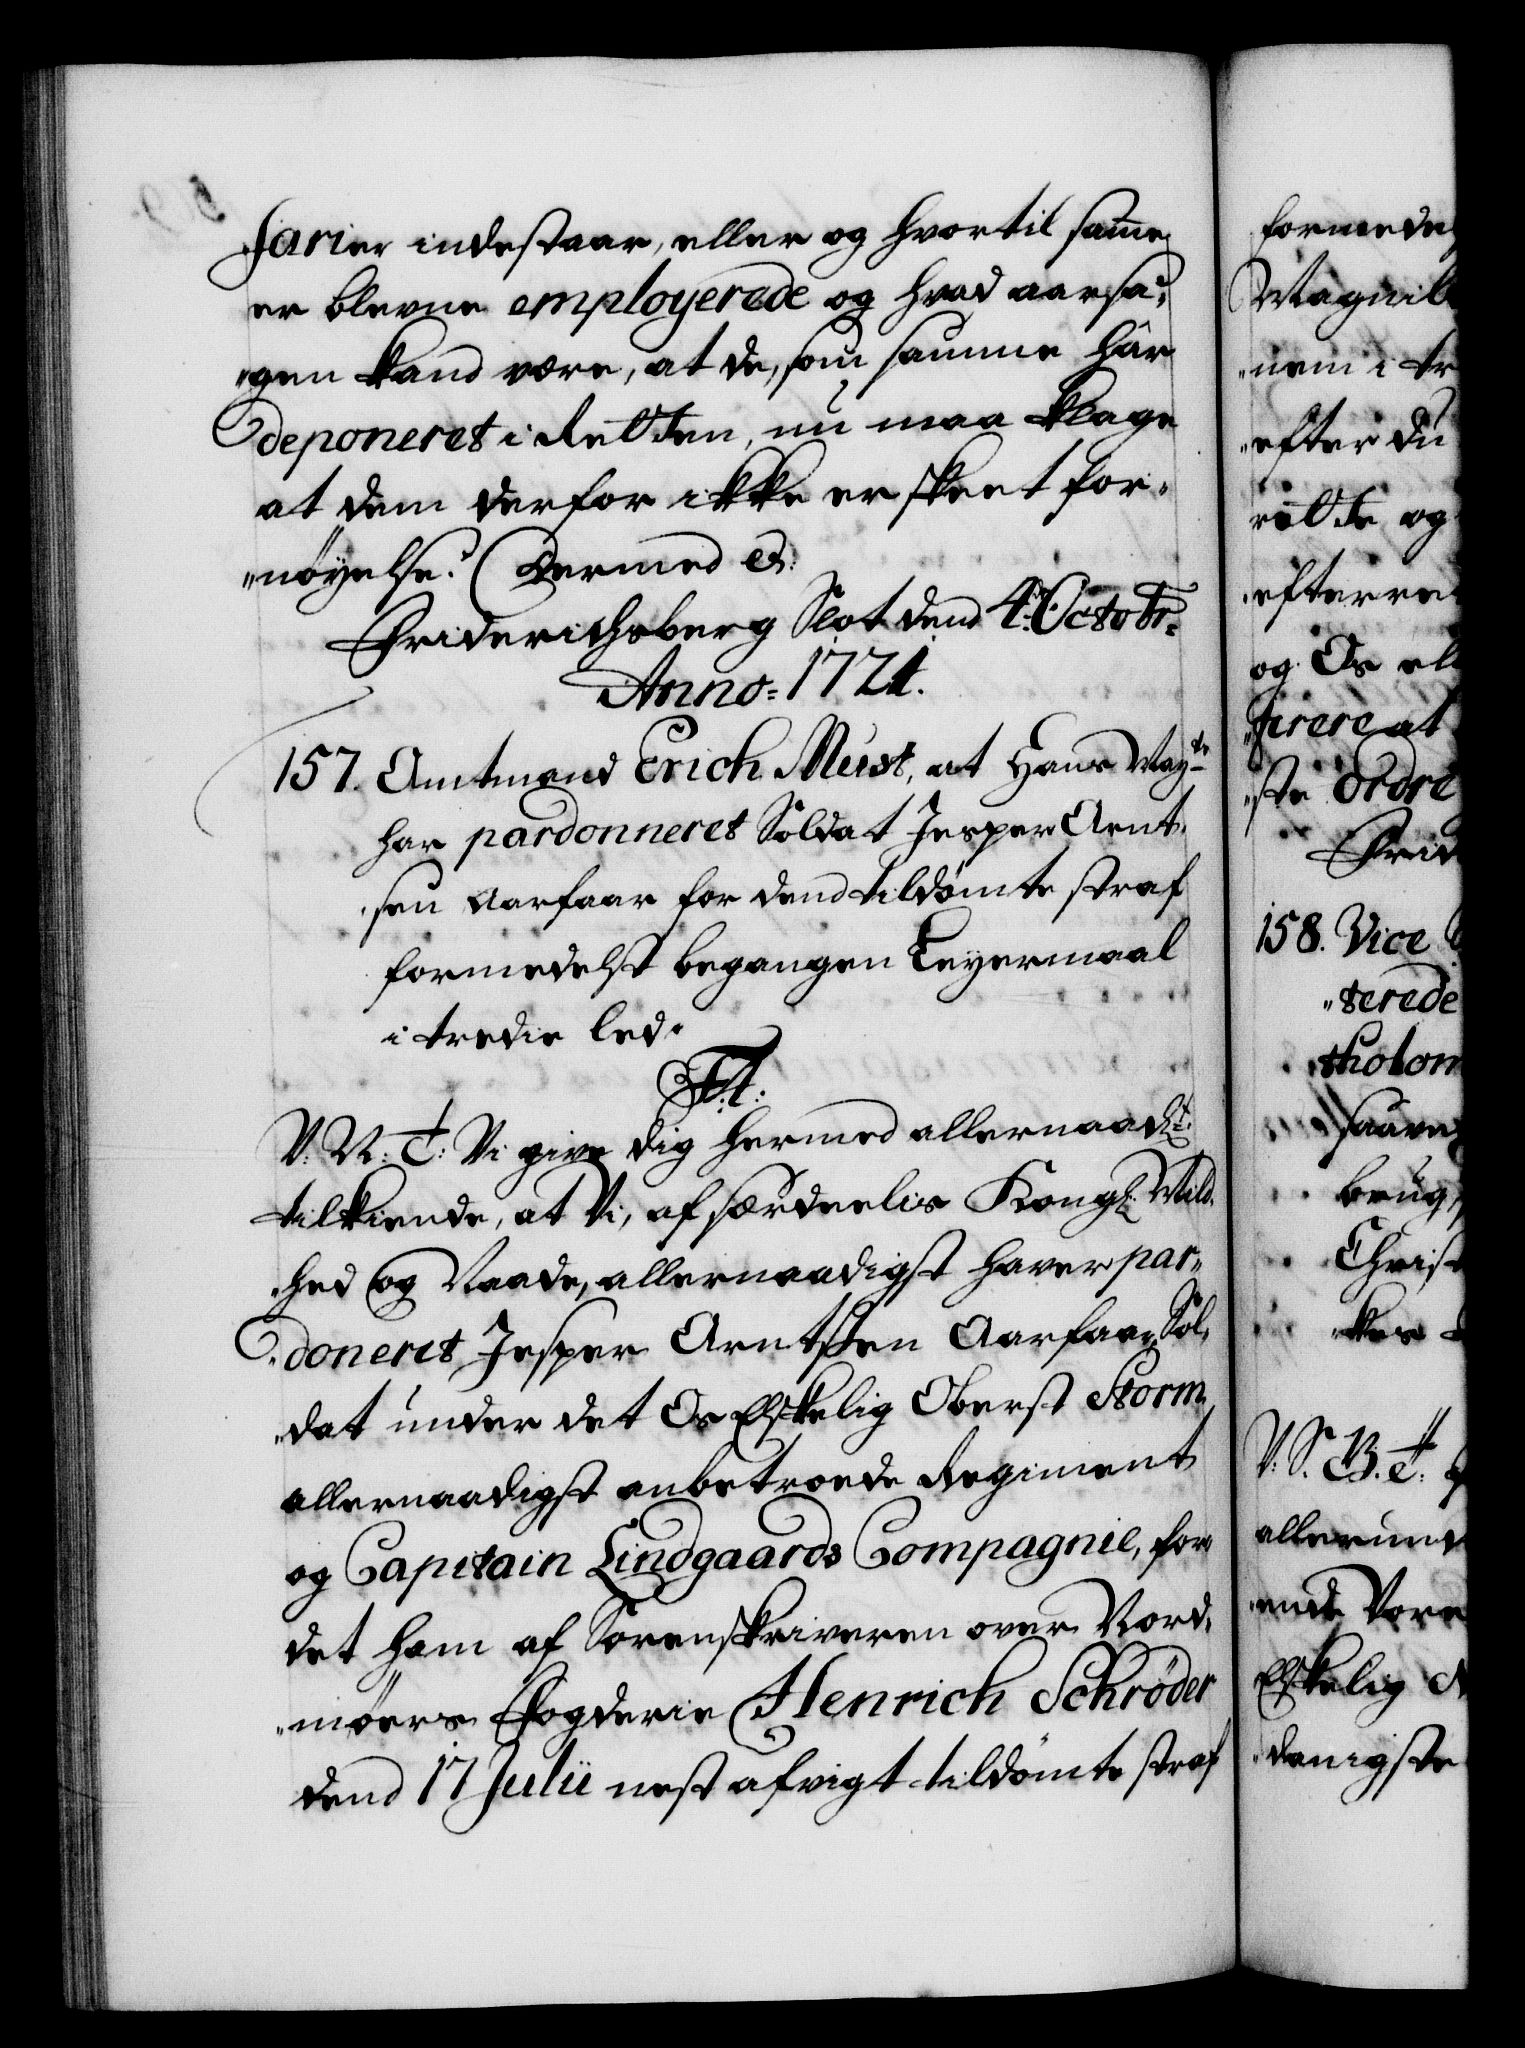 sarier indestaar, eller og hvortil samme
er blevne employerede og hvad aarsa-
"gen kand være, at de, som samme har
deponeret i Retten, nu maa klage
at dem derfor ikke er skeet for-
"nöyelse? Dermed
Friderichsberg Slot dend 4. Octobr:
Anno: 1721.
157. Amtmand Erich Must, at Hans May:
har pardonneret Soldat Jesper Arnt-
sen Aarfaar for dend tildömte straf
formedelst begangen Leyermaal
i tredie led.
F: 4:
V: N: T: Vi give dig hermed allernaad:
tilkiende, at Vi, af særdeelis Kongl: Mild-
hed og Naade, allernaadigst haver par-
"doneret Jesper Arntsen Aarfaar, Sol-
"dat under det Os Elskelig Oberst Storm
allernaadigst anbetroede Regiment
og Capitain Lindgaards Compagnie, for
det ham af Sorenskriveren over Nord-
"möers Fogderie Henrich Schrøder
dend 17 Julii nest afvigt tildömte straf
formede
Magnil
nem i
efter du
rette og
efterre
og Os el
"ste Ordre
Frid
158. Vice
"terede
tholom
brug
Christ
V: S. B. T:
allerund
Vore
Elskelig
danigste